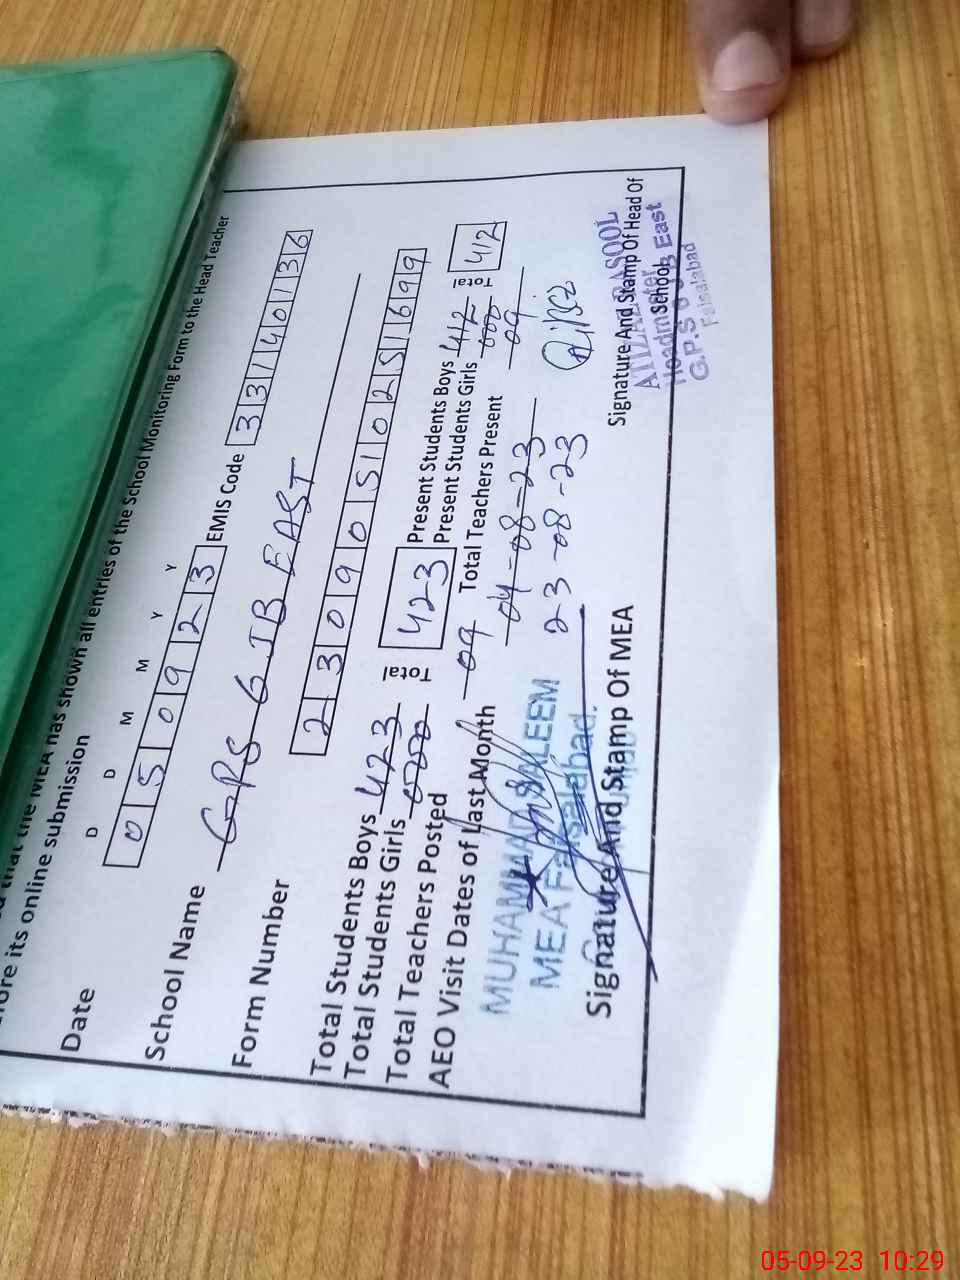 that the MEA has shown all entries of the School Monitoring Form to the Head Teacher
its online submission
D D M M Y Y
Date 0 5 0 9 2 3 EMIS Code 3 3 1 4 0 1 3 6
School Name GPS 6 JB EAST
Form Number 2 3 0 9 0 5 1 0 2 5 1 6 9 9
Total Students Boys 423 Total 423 Present Students Boys 412 Total 412
Total Students Girls 000 Present Students Girls 000
Total Teachers Posted 09 Total Teachers Present 09
AEO Visit Dates of Last Month 04-08-23
23-08-23
MUHAMMAD SALEEM
MEA Faisalabad.
Signature And Stamp Of MEA
Signature And Stamp Of Head Of
School
RASOOL
Headmaster
G.P.S 6 JB East
Faisalabad
05-09-23 10:29